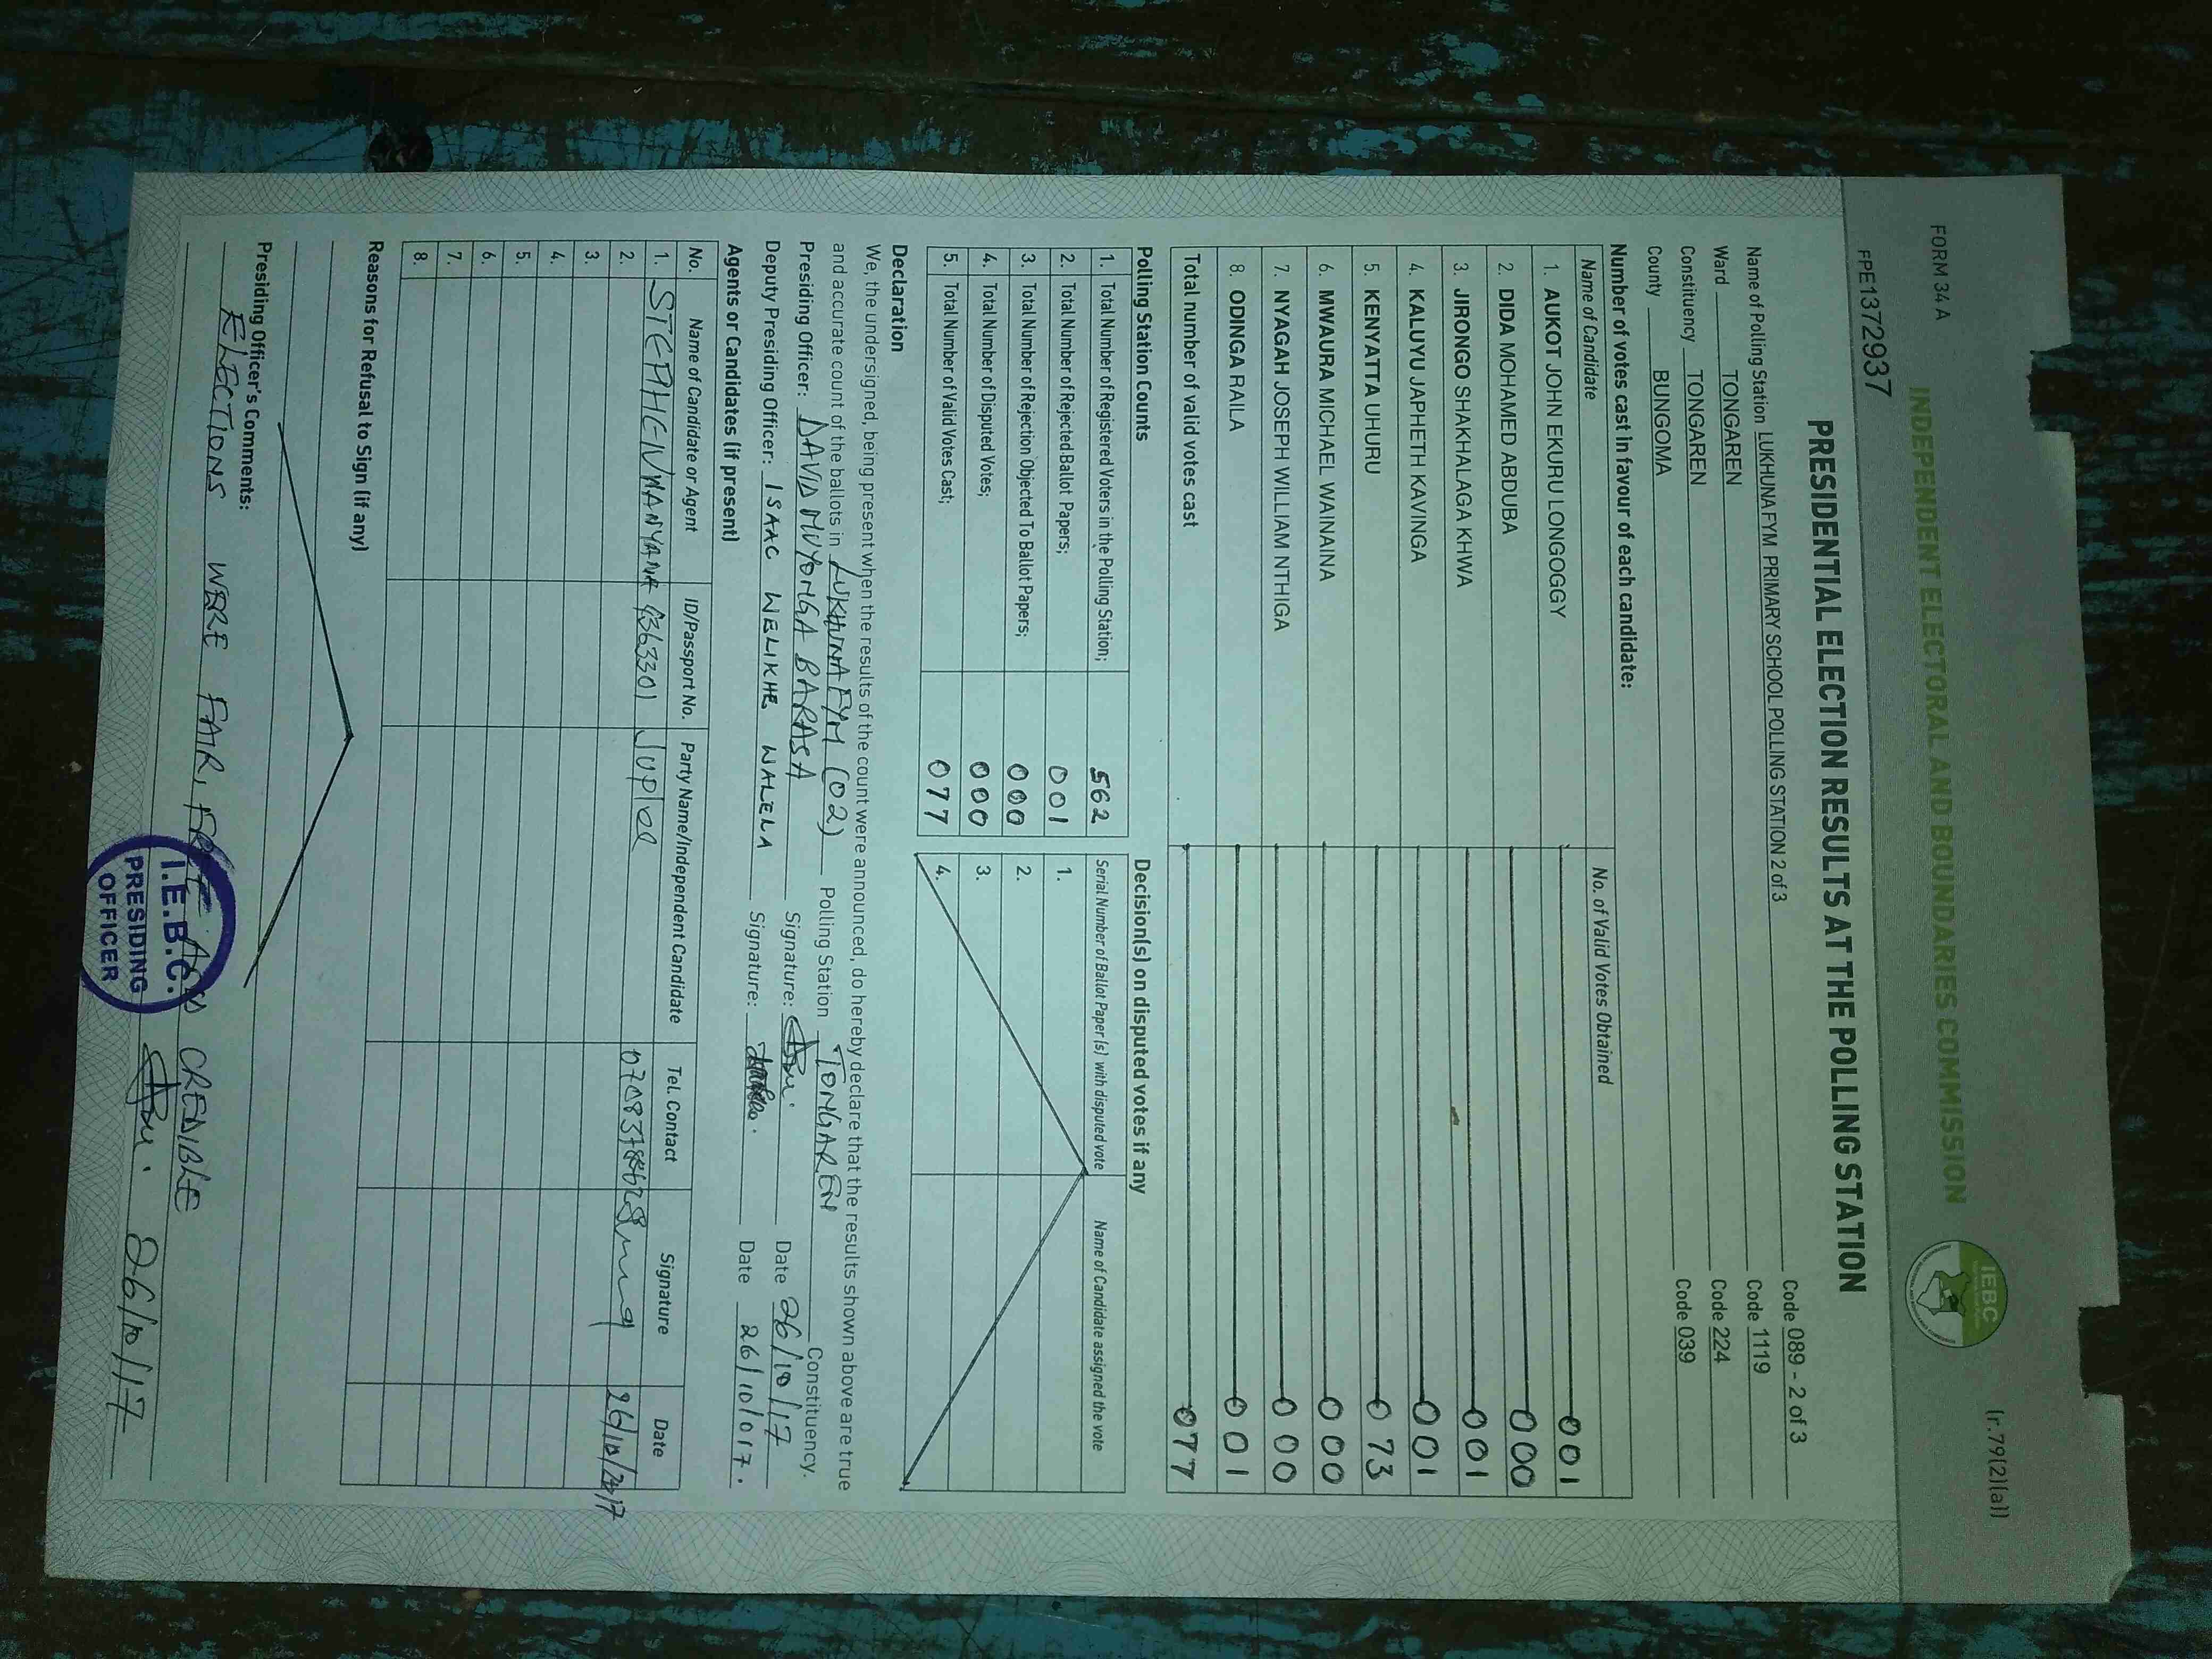 FORM 34 A
(r.79(2)(a))
INDEPENDENT ELECTORAL AND BOUNDARIES COMMISSION
IEBC
FPE1372937
PRESIDENTIAL ELECTION RESULTS AT THE POLLING STATION
Name of Polling Station LUKHUNA FYM PRIMARY SCHOOL POLLING STATION 2 of 3 Code 089 - 2 of 3
Ward TONGAREN Code 1119
Constituency TONGAREN Code 224
County BUNGOMA Code 039
Number of votes cast in favour of each candidate:
Name of Candidate No. of Valid Votes Obtained
1. AUKOT JOHN EKURU LONGOGGY 001
2. DIDA MOHAMED ABDUBA 000
3. JIRONGO SHAKHALAGA KHWA 001
4. KALUYU JAPHETH KAVINGA 001
5. KENYATTA UHURU 073
6. MWAURA MICHAEL WAINAINA 000
7. NYAGAH JOSEPH WILLIAM NTHIGA 000
8. ODINGA RAILA 001
Total number of valid votes cast 077
Polling Station Counts
1. Total Number of Registered Voters in the Polling Station; 562
2. Total Number of Rejected Ballot Papers; 001
3. Total Number of Rejection Objected To Ballot Papers; 000
4. Total Number of Disputed Votes; 000
5. Total Number of Valid Votes Cast; 077
Decision(s) on disputed votes if any
Serial Number of Ballot Paper (s) with disputed vote Name of Candidate assigned the vote
1.
2.
3.
4.
Declaration
We, the undersigned, being present when the results of the count were announced, do hereby declare that the results shown above are true
and accurate count of the ballots in LUKHUNA FYM (02) Polling Station TONGAREN Constituency.
Presiding Officer: DAVID MUYONGA BARASA Signature: Date 26/10/17
Deputy Presiding Officer: ISAAC WELIKHE WALELA Signature: Date 26/10/017.
Agents or Candidates (if present)
No. Name of Candidate or Agent ID/Passport No. Party Name/Independent Candidate Tel. Contact Signature Date
1. STEPHEN Jubilee
2.
3.
4.
5.
6.
7.
8.
Reasons for Refusal to Sign (if any)
Presiding Officer's Comments:
ELECTIONS WERE FAIR, FREE AND CREDIBLE
26/10/17
I.E.B.C.
PRESIDING
OFFICER